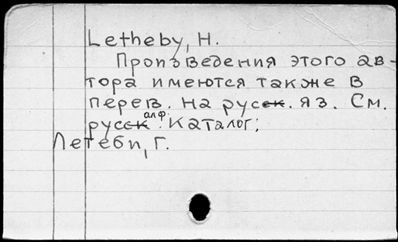 Letheby, H.
Произведения этого ав-
тора имеются также в
перев. на русск. яз. См.
русск. алф. каталог;
Летеби, Г.